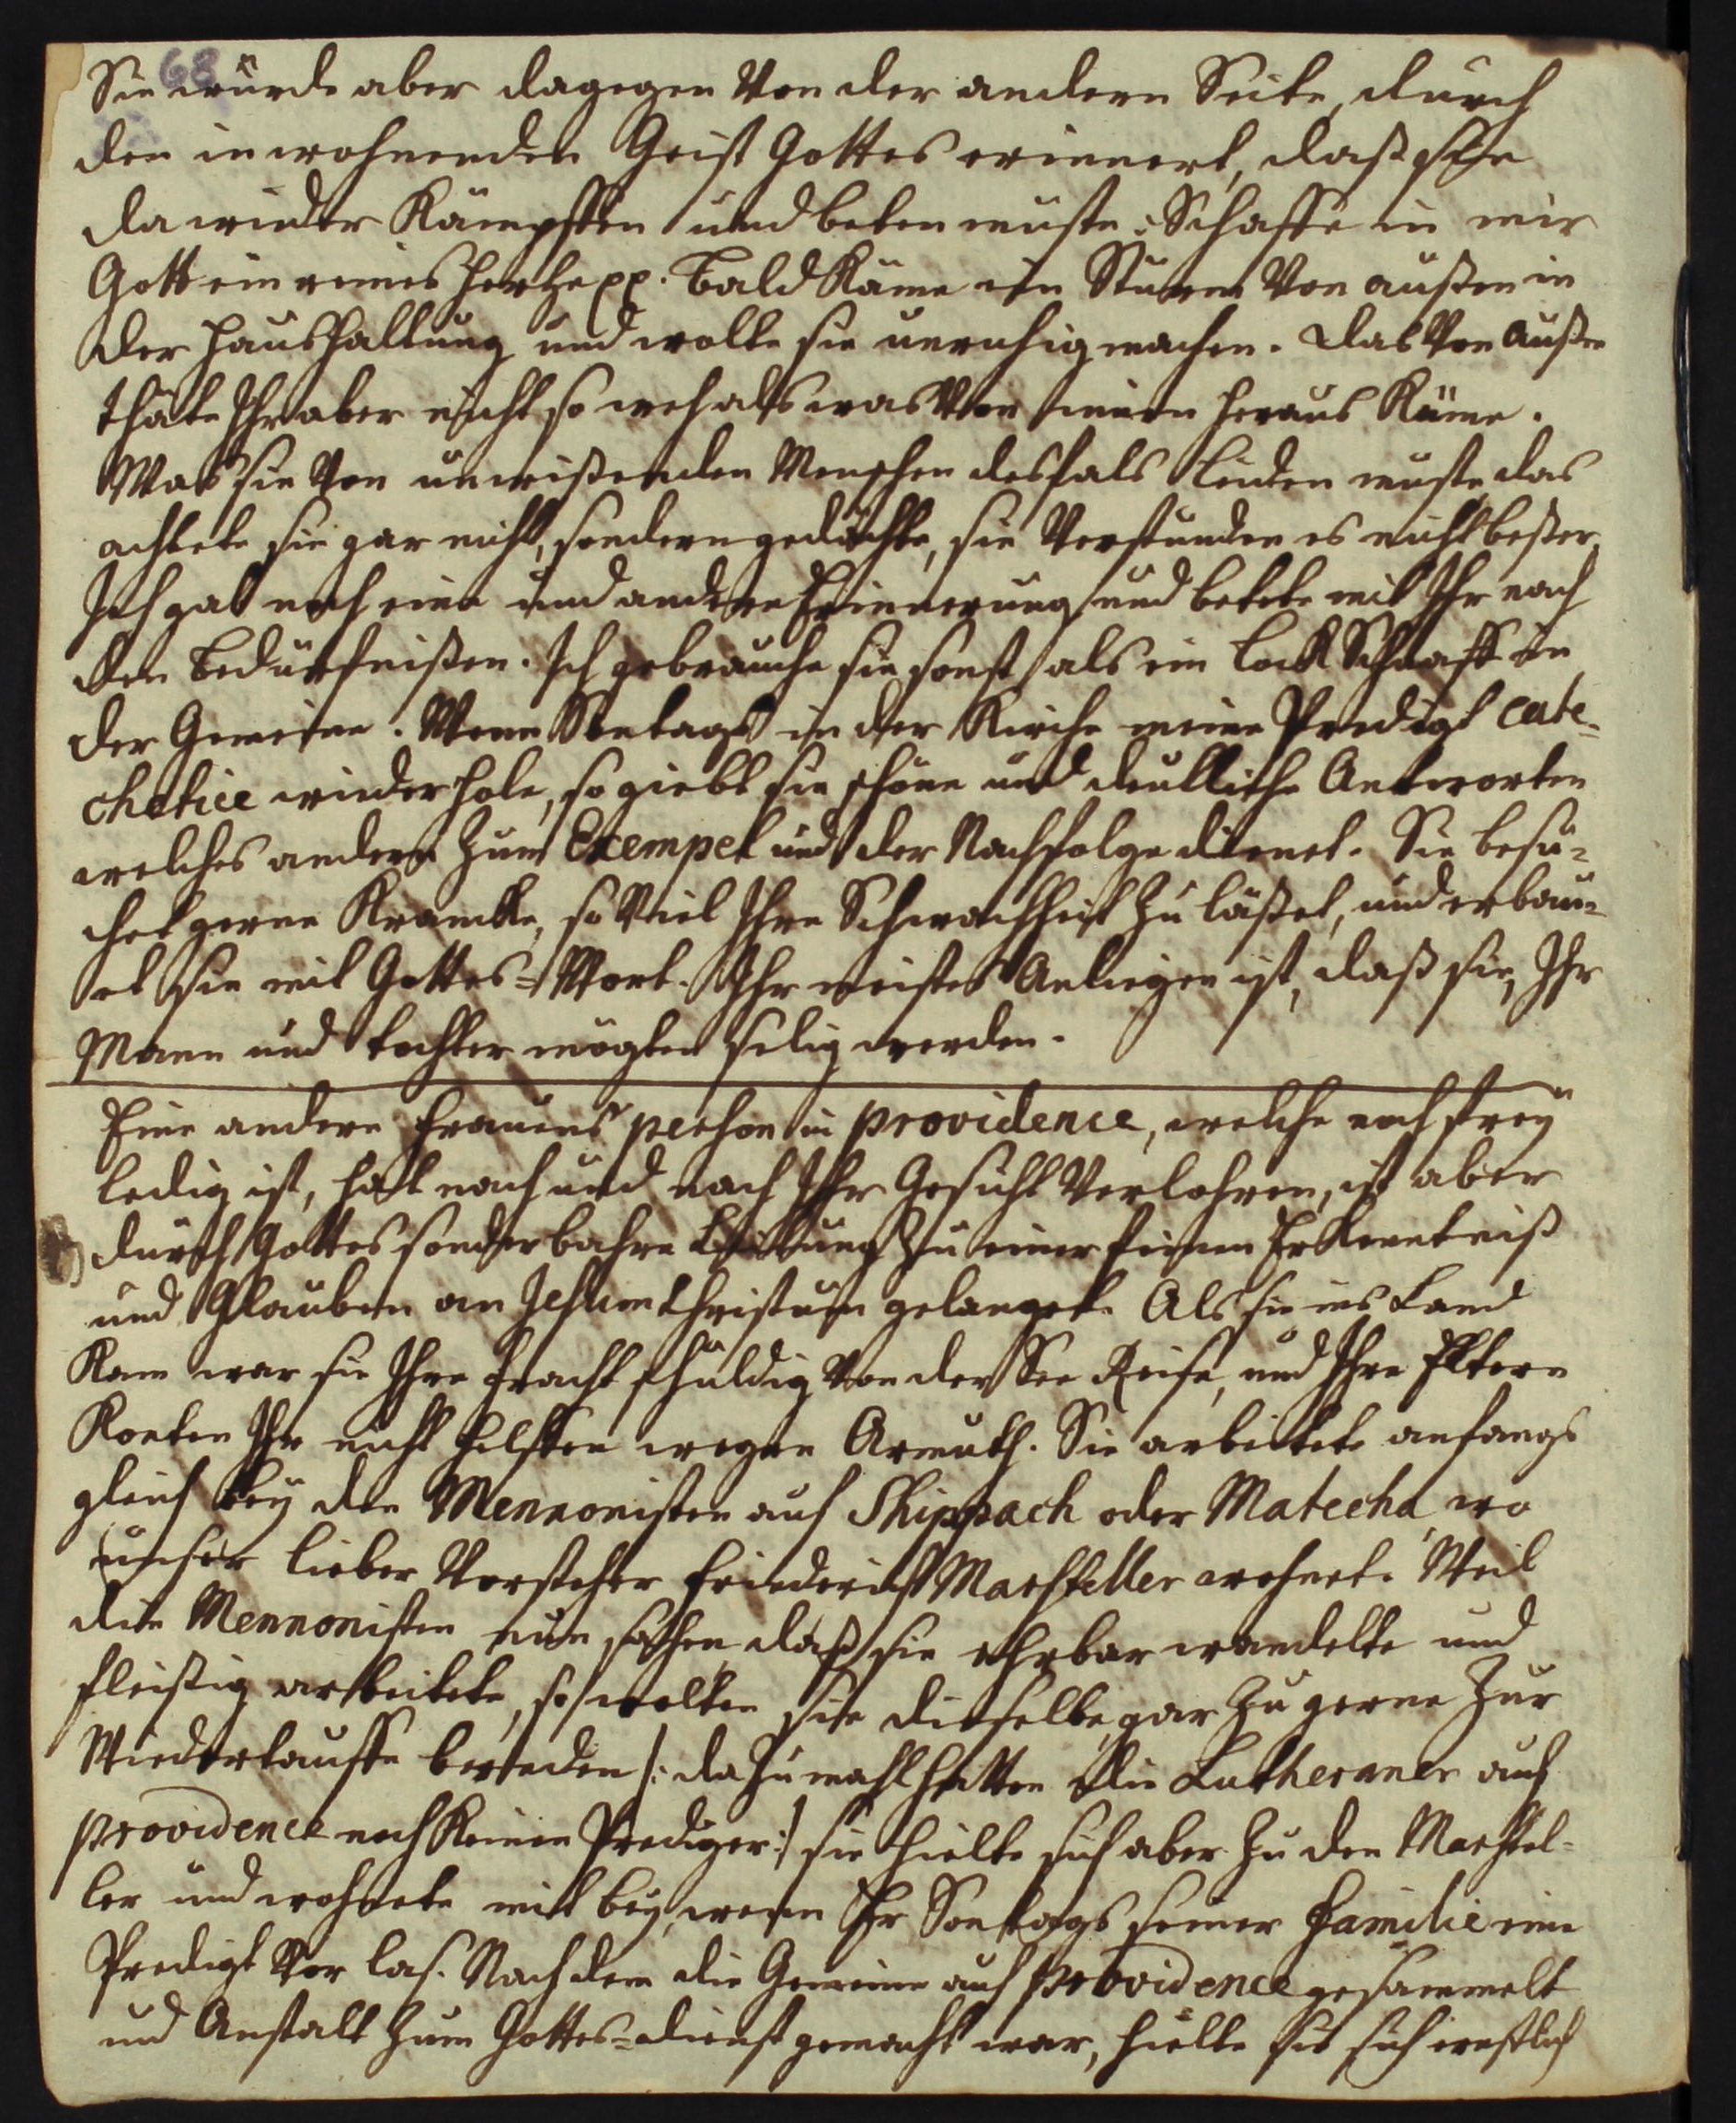 68
Sie würde aber dagegen von der andern Seite, durch
den inwohnenden Geist Gottes erinnert, daß sie
dawieder Kämpffen und beten müste: Schaffe in mir
Gott ein reines Hertze pp. Bald Käme ein Sturm von außen in
der Haushaltung und wolte sie unruhig machen. Das von außen
thäte Ihr aber nicht so weh als was von innen heraus Käme.
Was sie von unwißenden Menschen desfals leiden muste, das
achtete sie gar nicht, sondern gedächte, sie verstunden es nicht beßer,
Ich gab noch eine und andere Erinnerung und betete mit Ihr nach
den Bedürfnißen. Ich gebrauche sie sonst als ein Lock Schaaff in
der Gemeine. Wenn Sontags in der Kirche meine Predigt cate-
chetice wiederhole, so giebt sie schöne und deutliche Antworten
welches andern zum Exempel und der Nachfolge dienet. Sie besu-
chet gerne Krancke, so viel Ihre Schwachheit zu läßet, und erbau-
et sie mit Gottes-Wort. Ihr meistes Anliegen ist, daß sie, Ihr
Mann und tochter mögten selig werden.
Eine andere Frauens person in providence, welche noch frey
ledig ist, hatt nach und nach Ihr Gesicht verlohren, ist aber
durch Gottes sonderbahre Leitung zu einer feinen Erkenntniß
und Glauben an Jesum Christum gelanget. Als sie ins Land
Kam war sie Ihre Fracht schuldig von der See Reise, und Ihre Eltern
Konten Ihr nicht helffen wegen Armuth. Sie arbeitete anfangs
gleich bey den Mennonisten auf Shippach oder Matecha wo
unser lieber Vorsteher Friederich Marsteller wohnet. Weil
die Mennonisten nun sahen, daß sie ehrbar wandelte und
fleißig arbeitete, so wolten sie dieselbe gar zu gerne zur
Wiedertauffe bereden /: dazumahl hatten die Lutheraner auf
providence noch Keinen Prediger:/ sie hielte sich aber zu den Marstel-
ler und wohnete mit bey, wenn Er Sontags seiner Familie eine
Predigt vor las. Nach dem die Gemeine auf providence gesammelt
und Anstalt zum Gottes-dienst gemacht war, hielte sie sich ernstlich